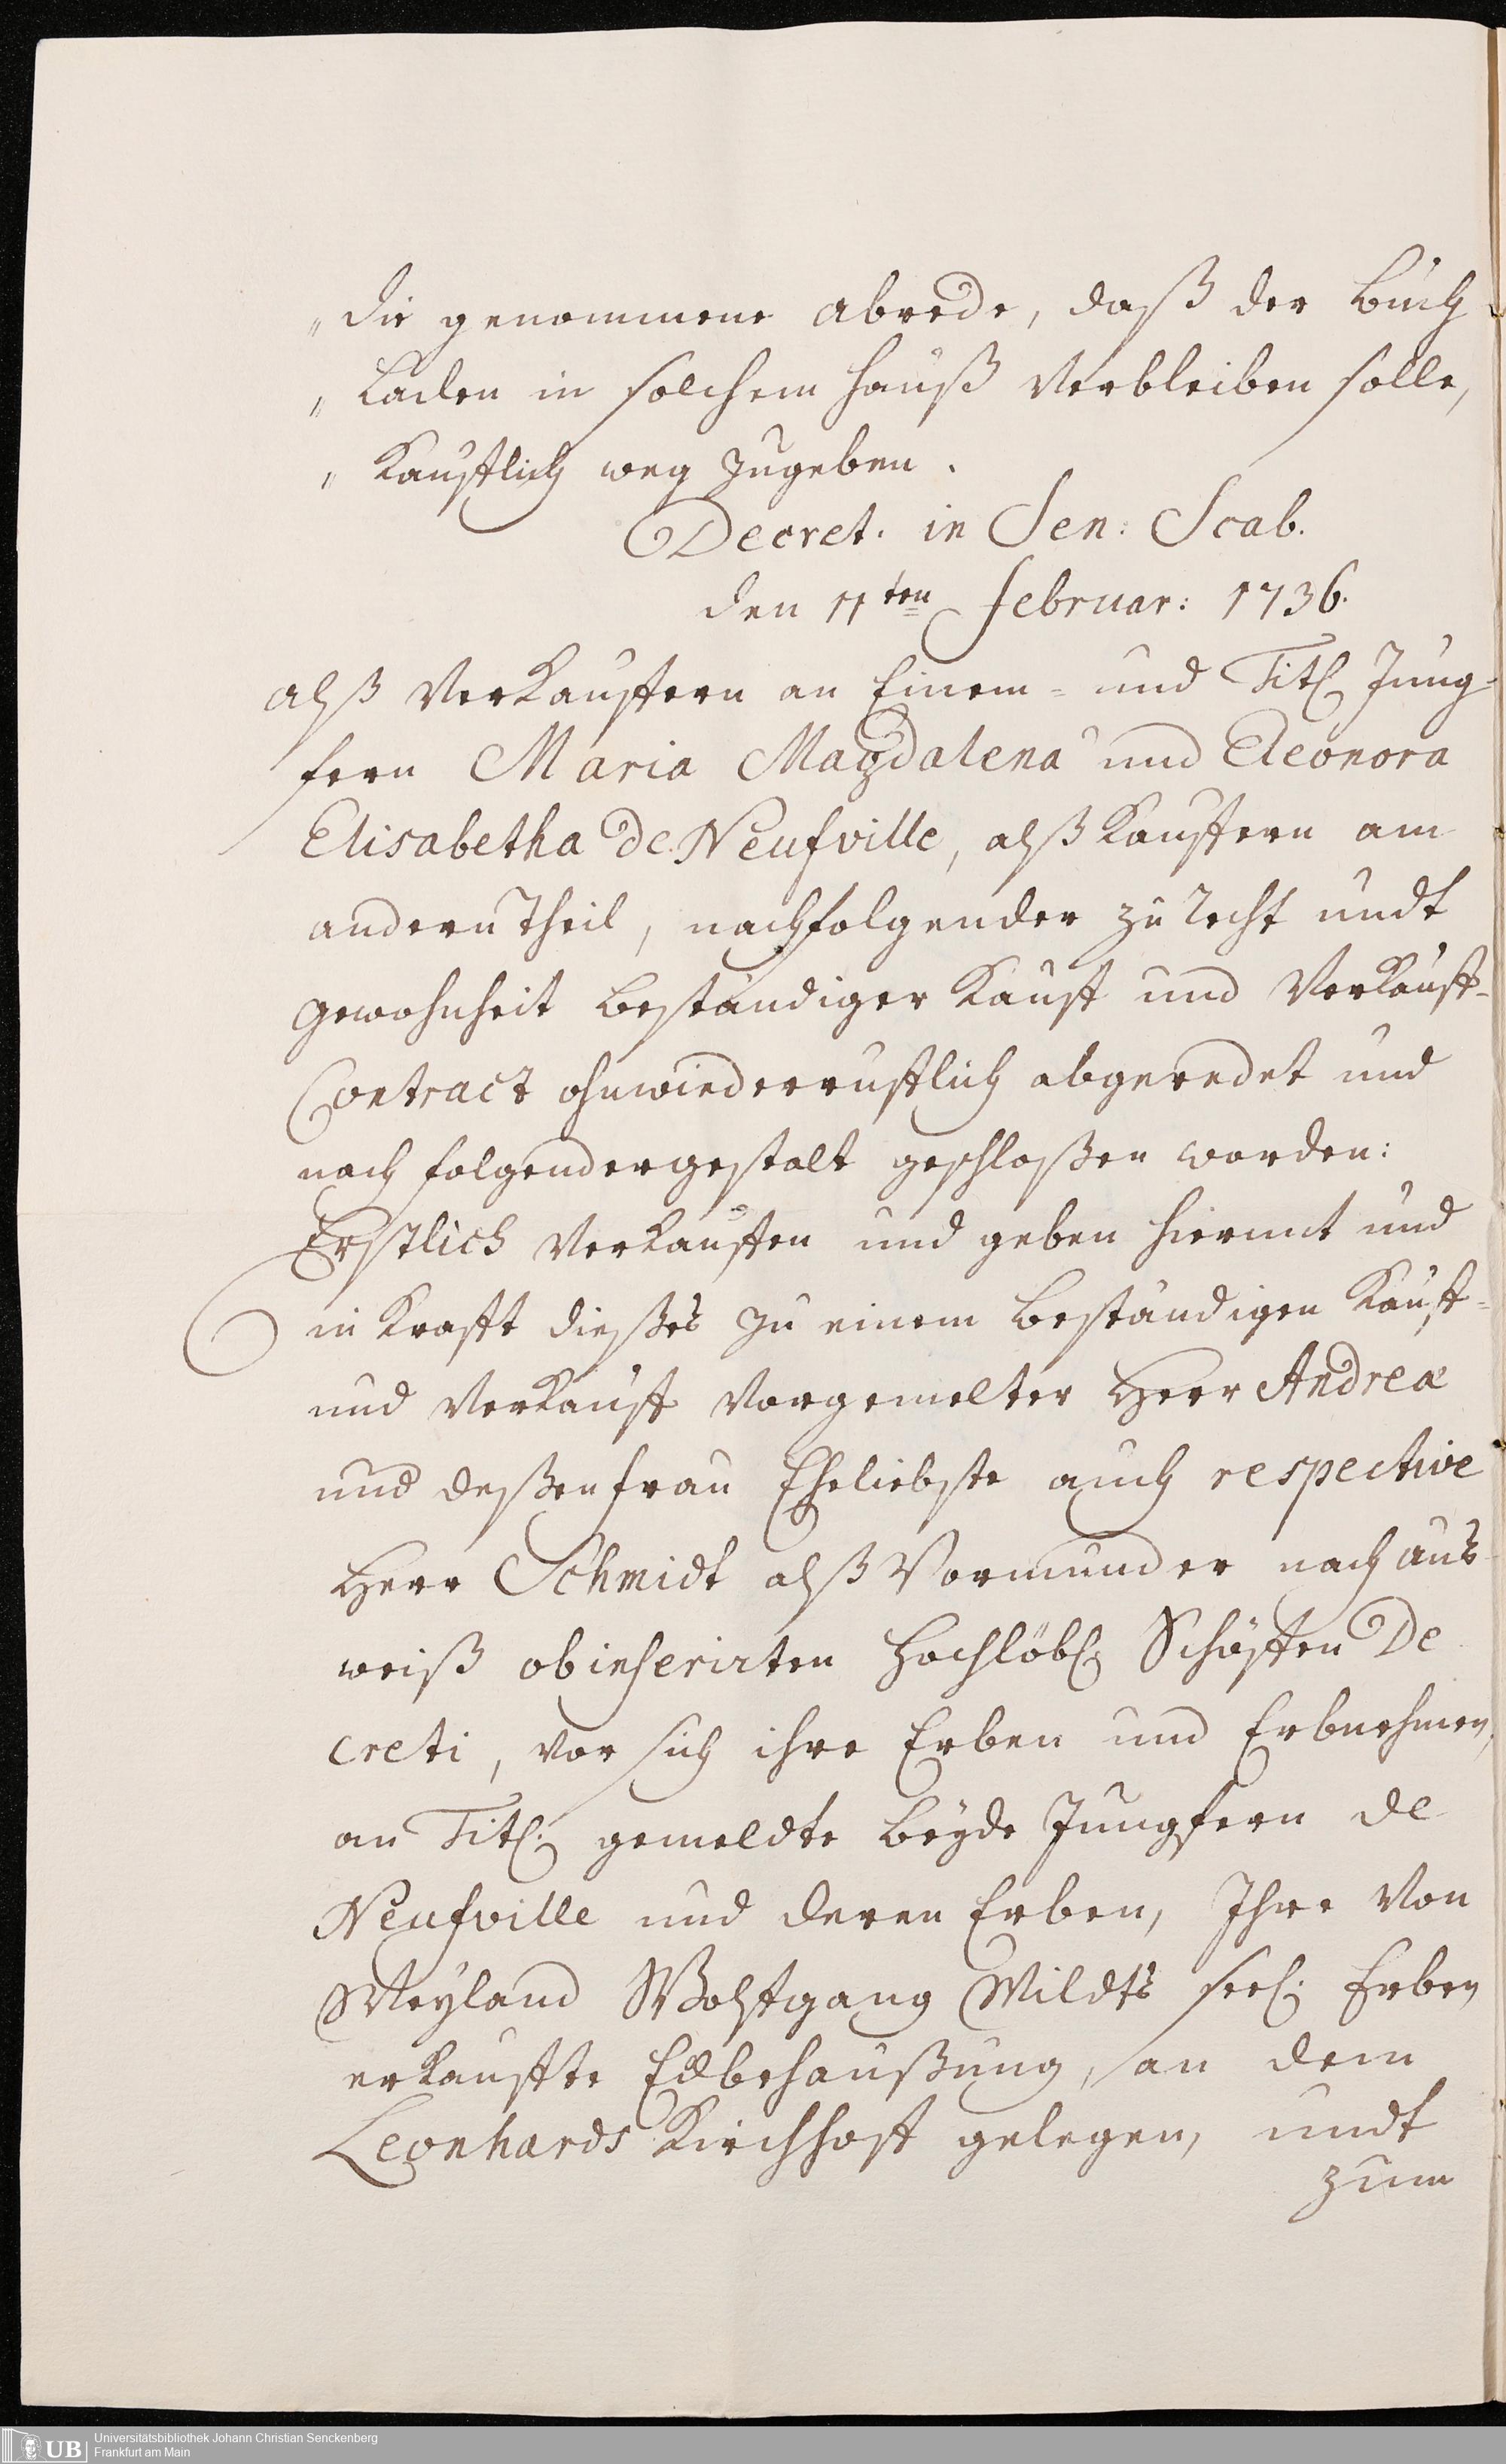 „ die genommene abrede, daß der buch
„ Laden in solchem hauß Verbleiben solle,
„ Kaufflich weg zugeben.
Decret. in Sen: Scab.
den 11ten februar: 1736.
alß Verkauffern an Einem- und Titl Jung-
fern Maria Magdalena und Eleonora
Elisabetha De Neufville, alß Kauffern am
andern Theil, nachfolgender zu Recht undt
gewohnheit beständiger Kauff und Verkauff-
Contract ohnwiederrufflich abgeredet und
nach folgendergestalt geschloßen worden:
Erstlich Verkauffen und geben hiermit und
in Krafft dießes zu einem beständigen Kauff-
und Verkauff Vorgemelter Herr Andreæ
und deßen frau Eheliebste auch respective
Herr Schmidt alß Vormünder nach aus-
weiß obinserirten Hochlöbl. Schöffen De
creti, vor sich ihre Erben und Erbnehmen,
an Titl. gemeldte beyde Jungfern de
Neufville und deren Erben, Ihre Von
Weyland Wolffgang Wildts seel. Erben
erkauffte Eckbehaußung, an dem
Leonhards Kirchhoff gelegen, undt
zum
UB
Universitätsbibliothek Johann Christian Senckenberg
Frankfurt am Main